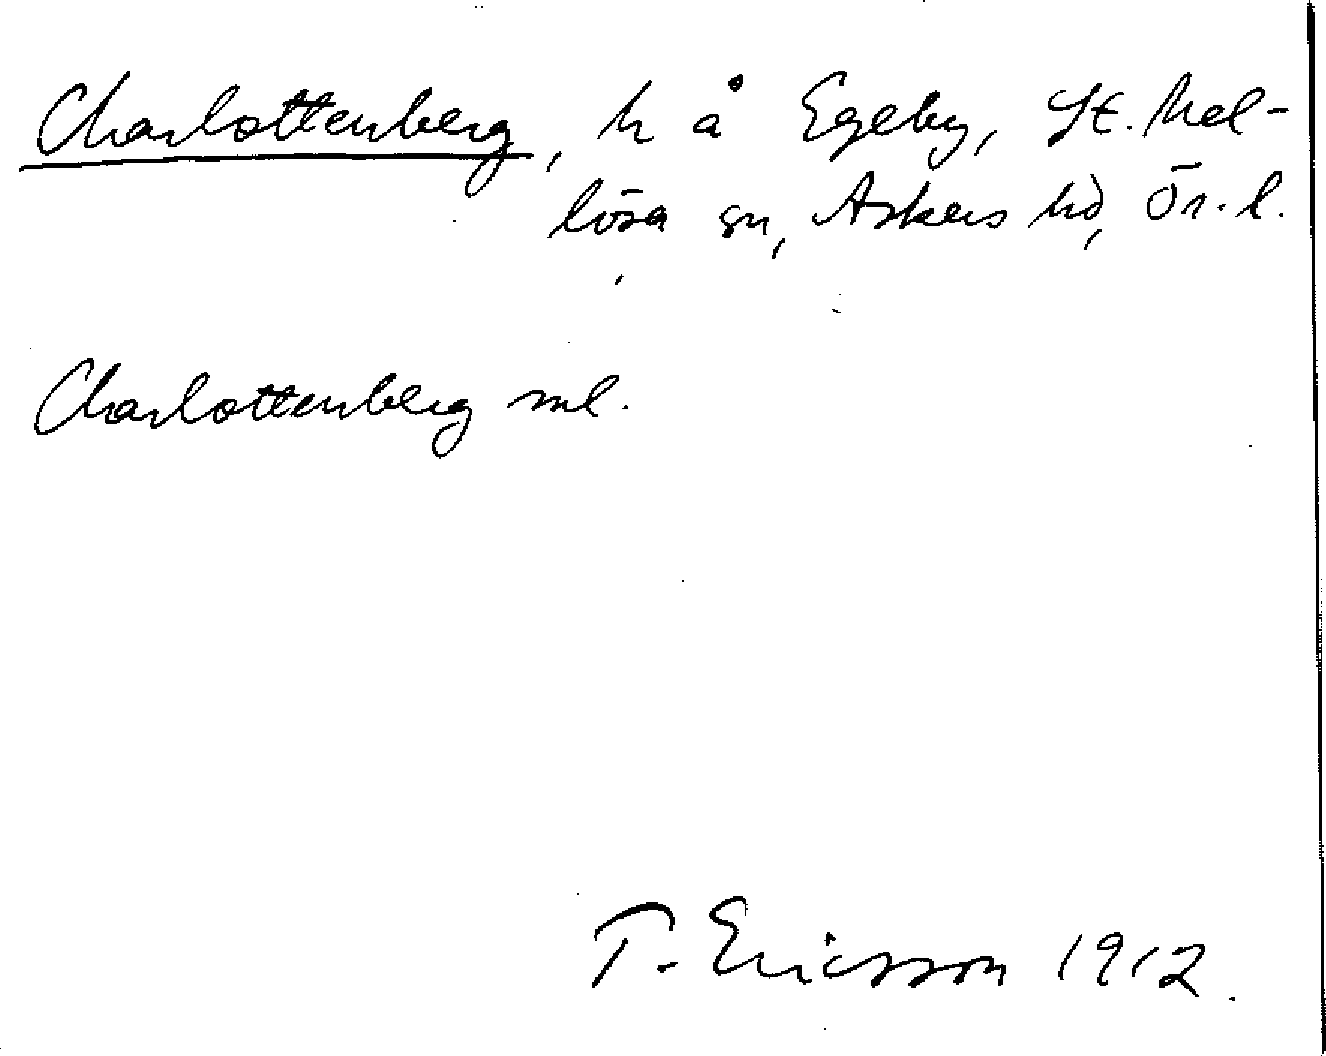 Charlottenberg, h å Egeby, St. Mel-
lösa sn, Askers hd, Ör. l.
Charlottenberg ml.
T. Ericsson 1912.